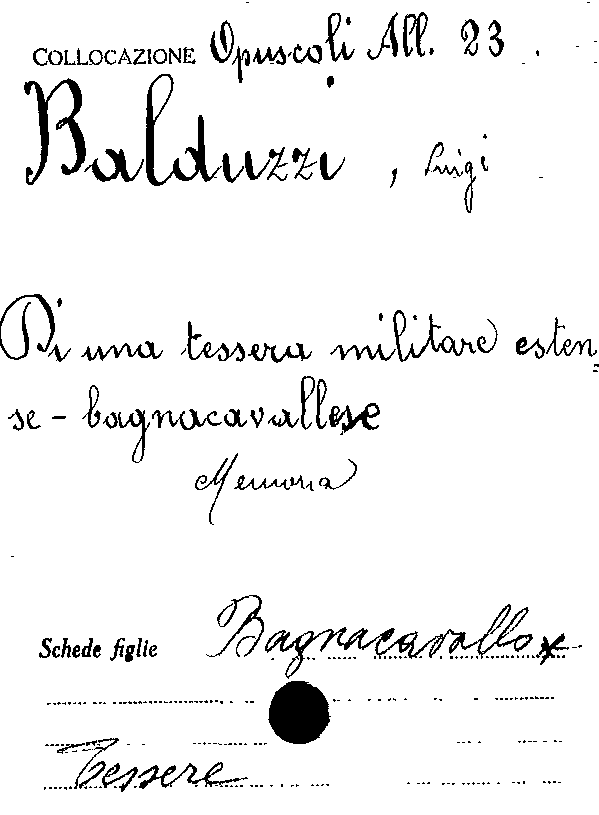 COLLOCAZIONE Opuscoli All. 23.
Balduzzi, Luigi
Di una tessera militare esten=
se - bagnacavallese
Memoria
Schede figlie Bagnacavallo x
Tessere